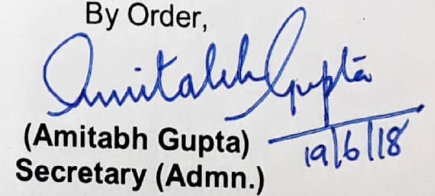 By Order,
Amitabh Gupta
19/6/18
(Amitabh Gupta)
Secretary (Admn.)